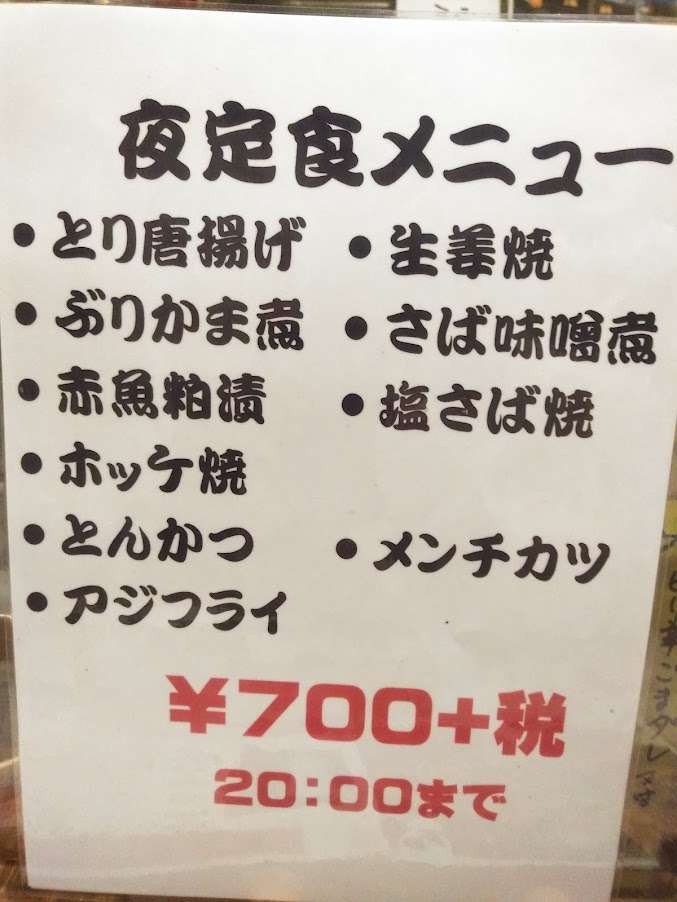 夜定食メニュー
• とり唐揚げ
• 生姜焼
• ぶりかま煮
• さば味噌煮
• 赤魚粕漬
• 塩さば焼
• ホッケ焼
• とんかつ
• メンチカツ
• アジフライ
¥700+税
20:00まで